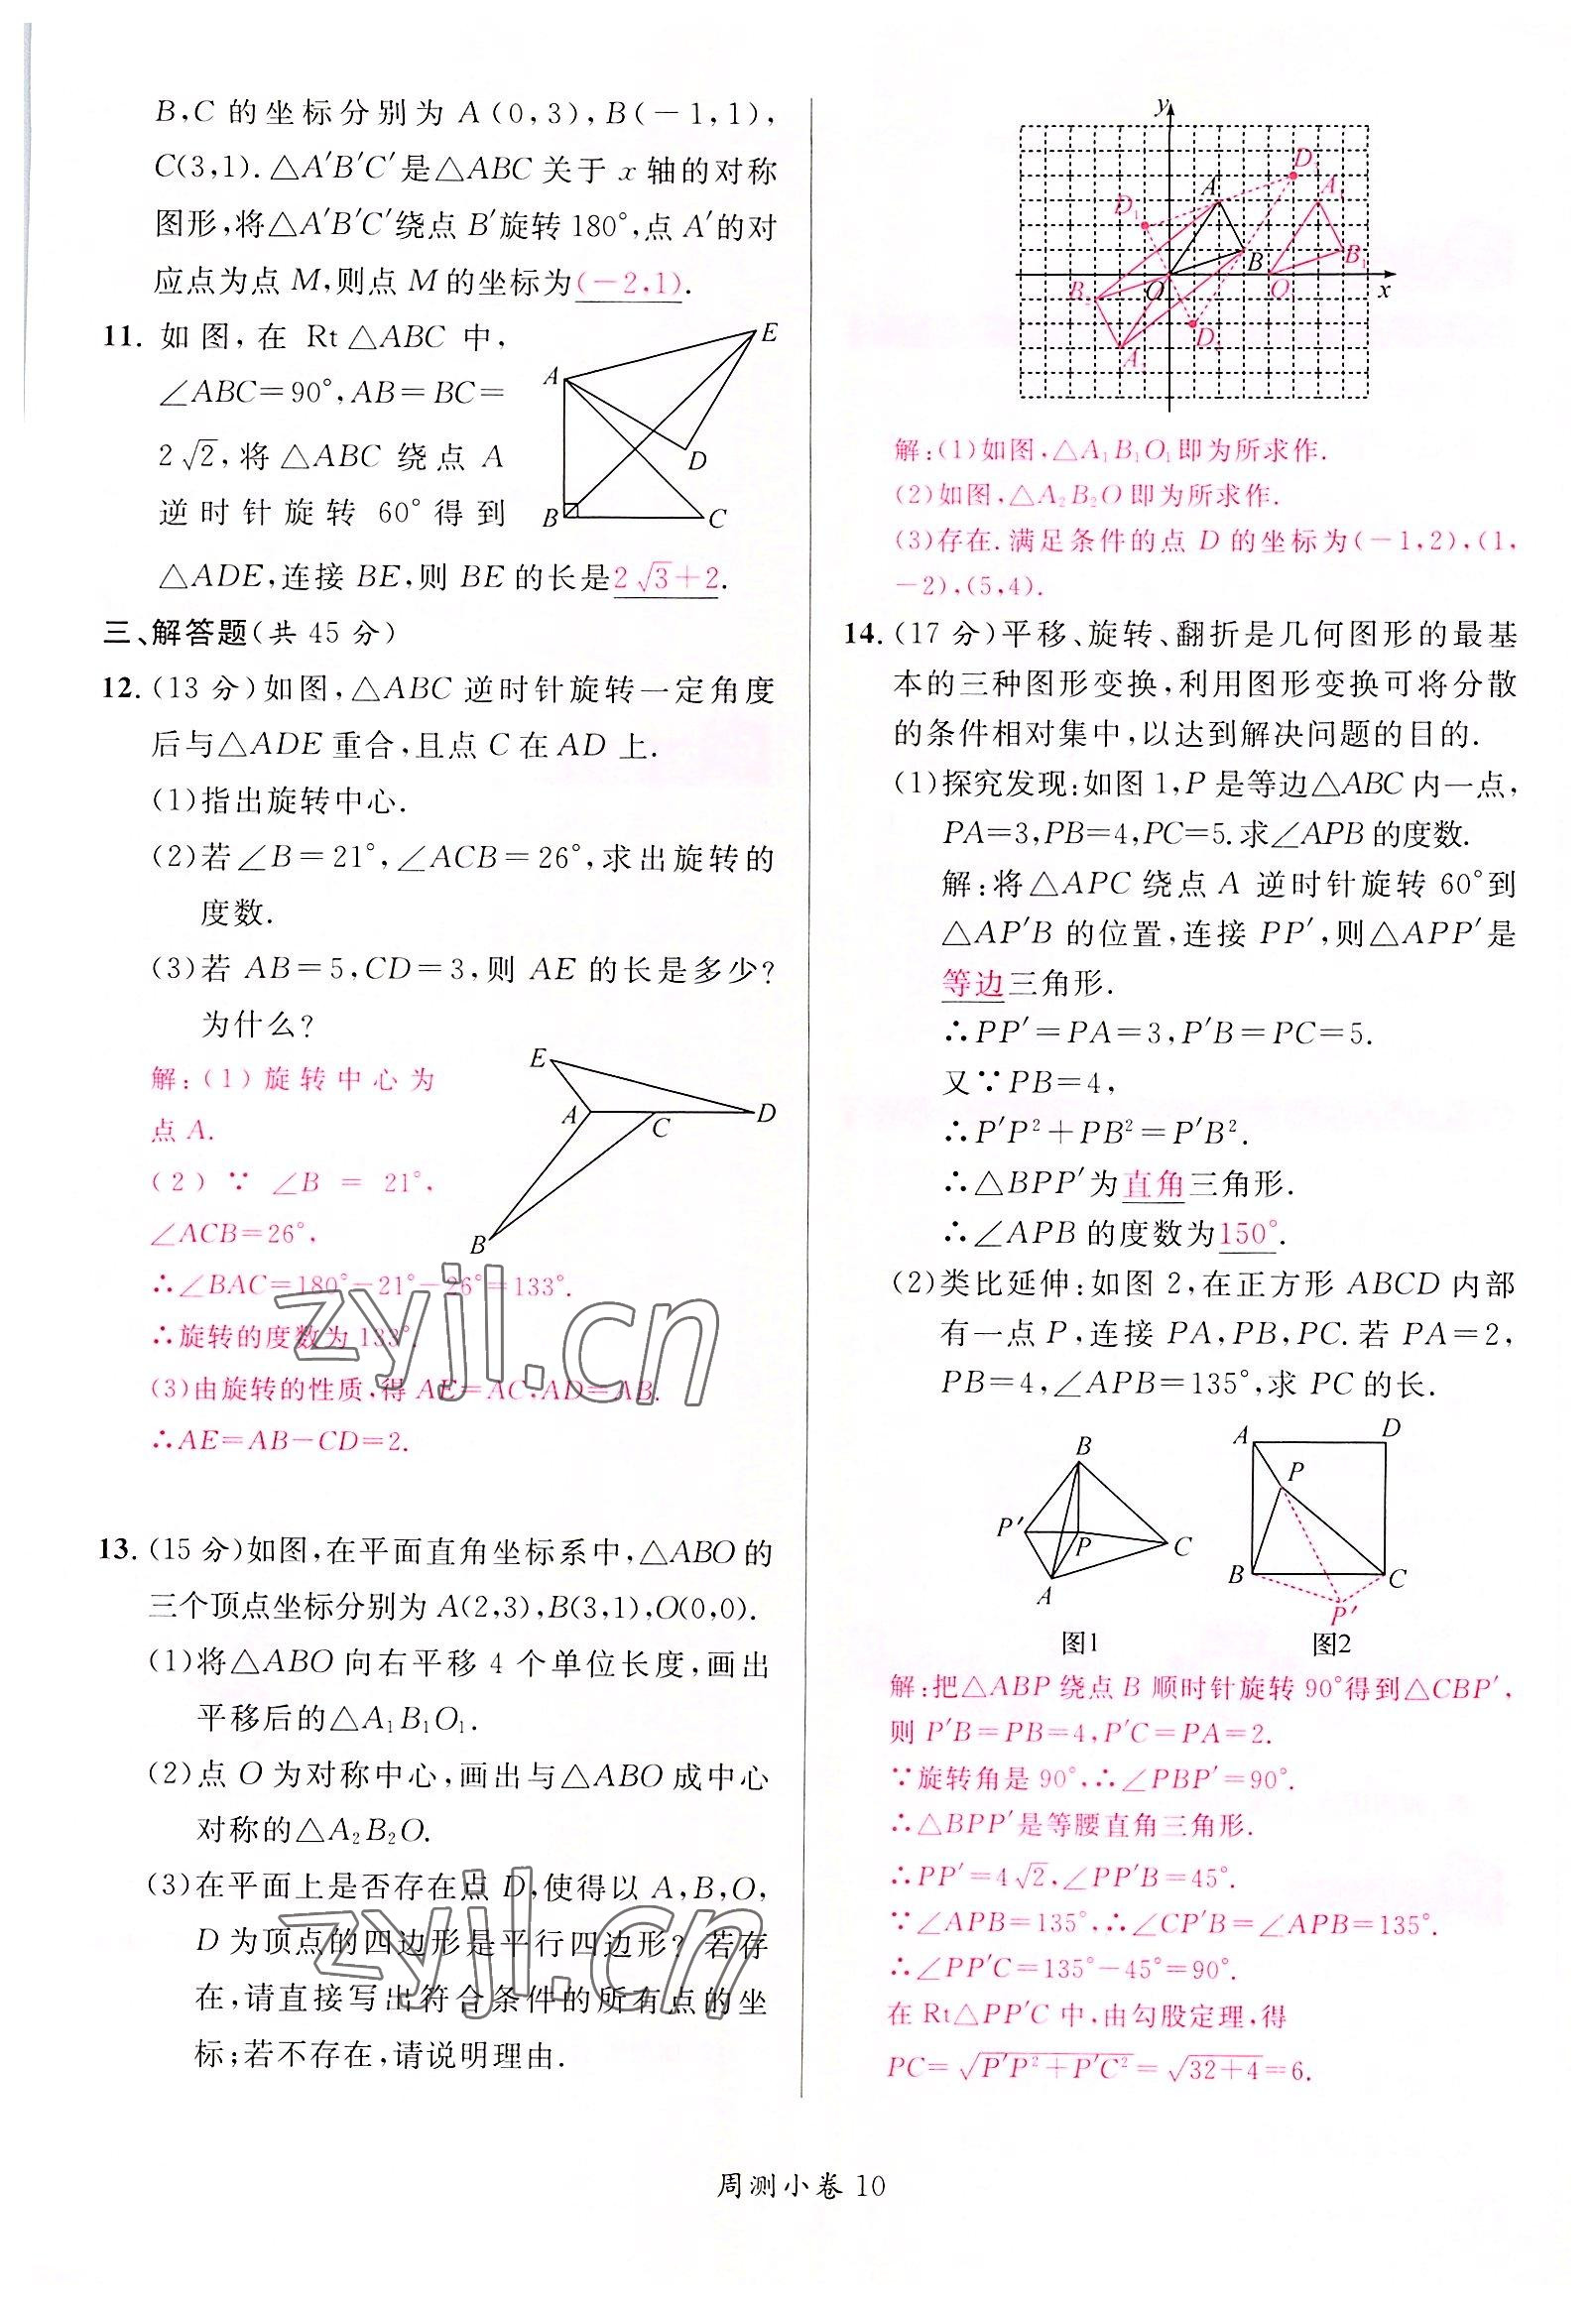 B,C 的坐标分别为 A(0,3),B(-1,1),
C(3,1).△A′B′C′是△ABC 关于 x 轴的对称
图形,将△A′B′C′绕点 B′旋转 180°,点 A′的对
应点为点 M,则点 M 的坐标为(-2,1).
11. 如图,在 Rt△ABC 中,
∠ABC=90°,AB=BC=
2√2,将△ABC 绕点 A
逆时针旋转 60°得到
△ADE,连接 BE,则 BE 的长是2√3+2.
A
E
D
B
C
三、解答题(共 45 分)
12. (13 分)如图,△ABC 逆时针旋转一定角度
后与△ADE 重合,且点 C 在 AD 上.
(1)指出旋转中心.
(2)若∠B=21°,∠ACB=26°,求出旋转的
度数.
(3)若 AB=5,CD=3,则 AE 的长是多少?
为什么?
解:(1)旋转中心为
点 A.
(2)∵∠B=21°,
∠ACB=26°,
∴∠BAC=180°-21°-26°=133°.
∴旋转的度数为 133°.
(3)由旋转的性质,得 AE=AC,AD=AB.
∴AE=AB-CD=2.
E
A
C
D
B
zyjl.cn
13. (15 分)如图,在平面直角坐标系中,△ABO 的
三个顶点坐标分别为 A(2,3),B(3,1),O(0,0).
(1)将△ABO 向右平移 4 个单位长度,画出
平移后的△A₁B₁O₁.
(2)点 O 为对称中心,画出与△ABO 成中心
对称的△A₂B₂O.
(3)在平面上是否存在点 D,使得以 A,B,O,
D 为顶点的四边形是平行四边形?若存
在,请直接写出符合条件的所有点的坐
标;若不存在,请说明理由.
zyjl.cn
y
D
A
A
D₁
B
B₁
B
O
O
x
D
A
解:(1)如图,△A₁B₁O₁即为所求作.
(2)如图,△A₂B₂O 即为所求作.
(3)存在.满足条件的点 D 的坐标为(-1,2),(1,
-2),(5,4).
14. (17 分)平移、旋转、翻折是几何图形的最基
本的三种图形变换,利用图形变换可将分散
的条件相对集中,以达到解决问题的目的.
(1)探究发现:如图 1,P 是等边△ABC 内一点,
PA=3,PB=4,PC=5.求∠APB 的度数.
解:将△APC 绕点 A 逆时针旋转 60°到
△AP′B 的位置,连接 PP′,则△APP′是
等边三角形.
∴PP′=PA=3,P′B=PC=5.
又∵PB=4,
∴P′P²+PB²=P′B².
∴△BPP′为直角三角形.
∴∠APB 的度数为150°.
(2)类比延伸:如图 2,在正方形 ABCD 内部
有一点 P,连接 PA,PB,PC.若 PA=2,
PB=4,∠APB=135°,求 PC 的长.
B
P′
P
C
A
图1
A
D
P
B
C
P′
图2
解:把△ABP 绕点 B 顺时针旋转 90°得到△CBP′,
则 P′B=PB=4,P′C=PA=2.
∵旋转角是 90°,∴∠PBP′=90°.
∴△BPP′是等腰直角三角形.
∴PP′=4√2,∠PP′B=45°.
∵∠APB=135°,∴∠CP′B=∠APB=135°.
∴∠PP′C=135°-45°=90°.
在 Rt△PP′C 中,由勾股定理,得
PC=√(P′P²+P′C²)=√(32+4)=6.
周测小卷 10